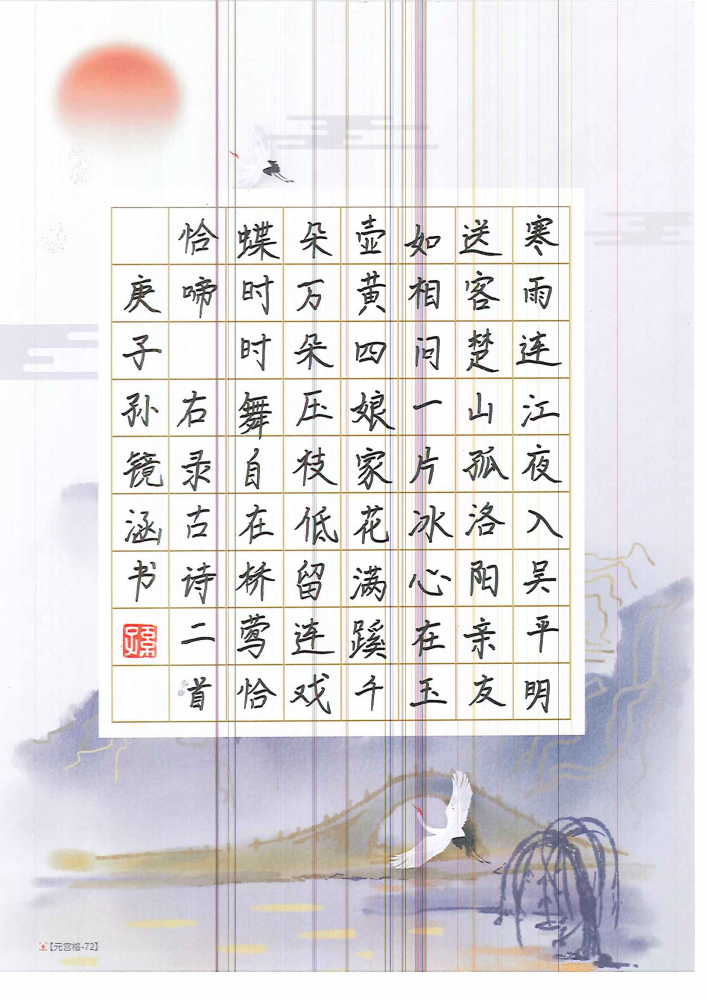 寒雨连江夜入吴平明
送客楚山孤洛阳亲友
如相问一片冰心在玉
壶黄四娘家花满蹊千
朵万朵压枝低留连戏
蝶时时舞自在桥莺恰
恰啼 右录古诗二首
庚子孙镜涵书
孫
【元宫格-72】